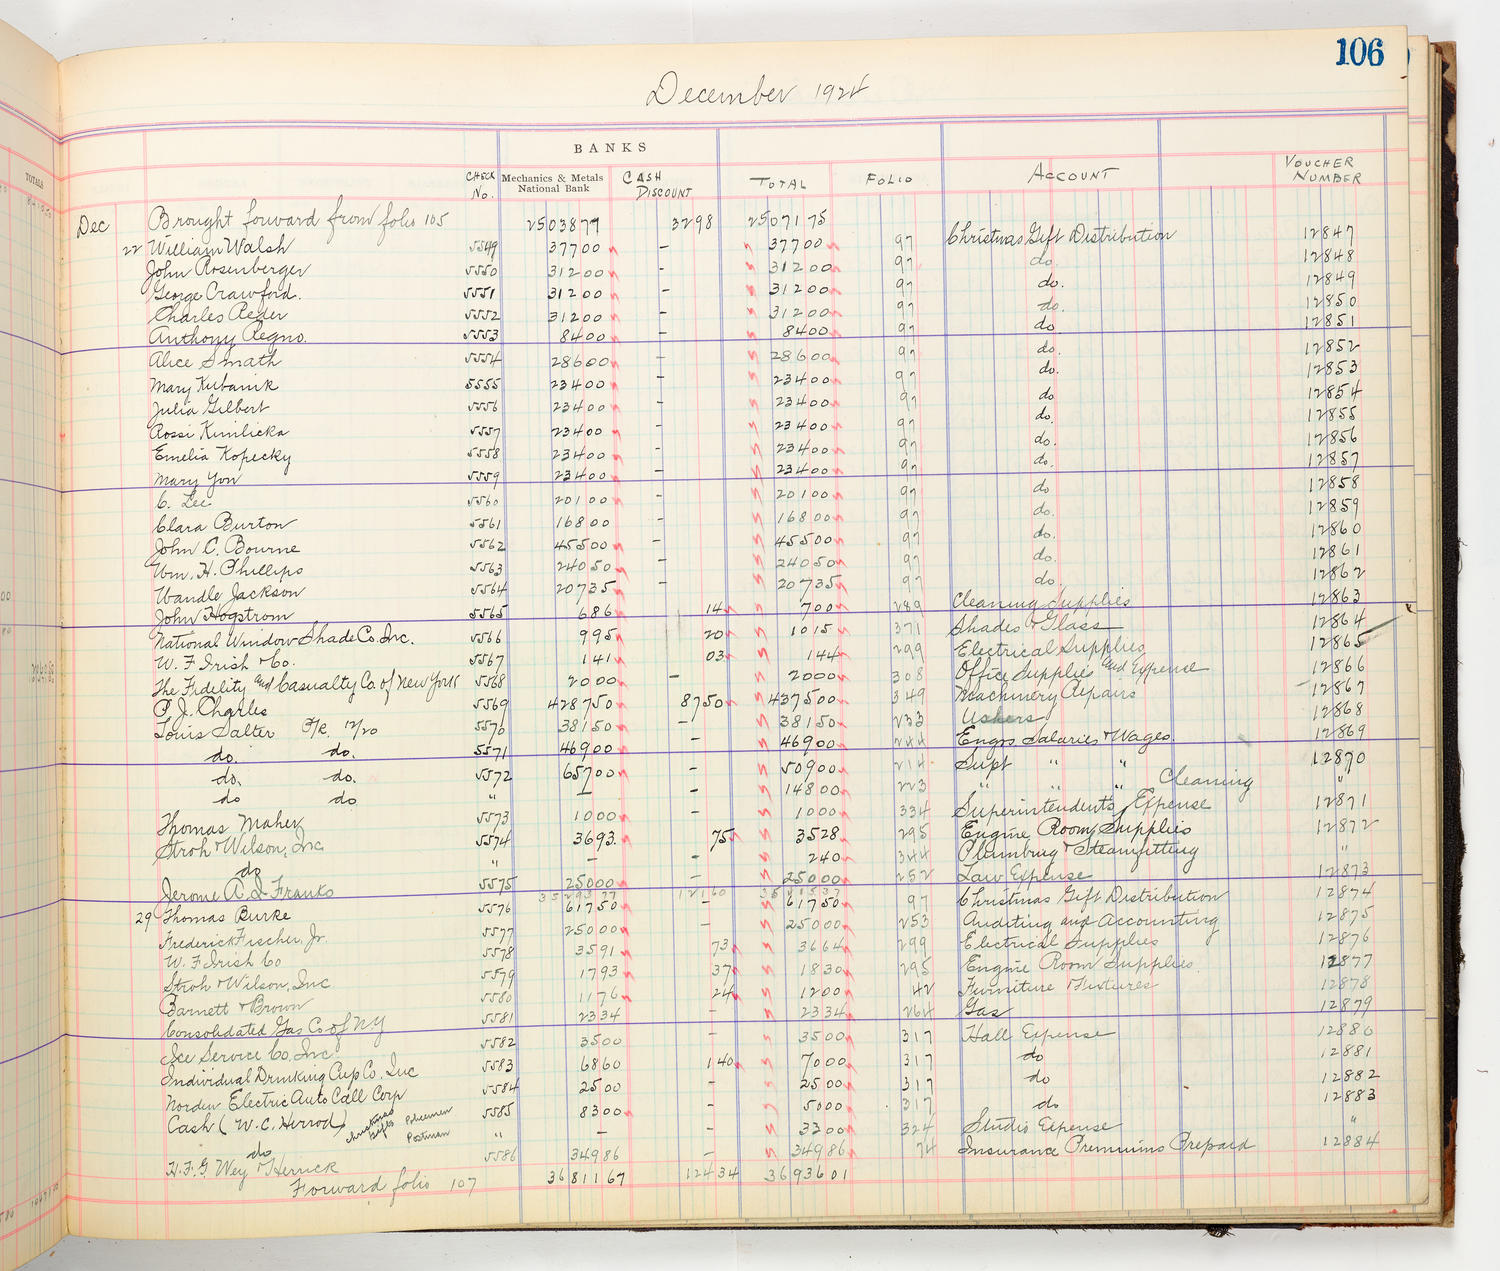 106
December 1924
BANKS
CHECK No. Mechanics & Metals National Bank CASH DISCOUNT TOTAL FOLIO ACCOUNT VOUCHER NUMBER
Dec Brought forward from folio 105 2503877 3298 2507175
22 William Walsh 5549 37700 – 37700 97 Christmas Gift Distribution 12847
John Rosenberger 5550 31200 – 31200 97 do. 12848
George Crawford. 5551 31200 – 31200 97 do. 12849
Charles Reder 5552 31200 – 31200 97 do. 12850
Anthony Regno. 5553 8400 – 8400 97 do 12851
Alice Smath 5554 28600 – 28600 97 do. 12852
Mary Kubanik 5555 23400 – 23400 97 do. 12853
Julia Gilbert 5556 23400 – 23400 97 do 12854
Rossi Kimlicka 5557 23400 – 23400 97 do. 12855
Emelia Kopecky 5558 23400 – 23400 97 do. 12856
Mary Yon 5559 23400 – 23400 97 do. 12857
C. Lee 5560 20100 – 20100 97 do 12858
Clara Burton 5561 16800 – 16800 97 do. 12859
John C. Bourne 5562 45500 – 45500 97 do. 12860
Wm. H. Phillips 5563 24050 – 24050 97 do. 12861
Wandle Jackson 5564 20735 – 20735 97 do. 12862
John Hogstrom 5565 686 14 700 289 Cleaning Supplies 12863
National Window Shade Co. Inc. 5566 995 20 1015 371 Shades & Glass 12864
W. F Irish & Co. 5567 141 03 144 299 Electrical Supplies 12865
The Fidelity and Casualty Co. of New York 5568 2000 – 2000 308 Office Supplies and Expense 12866
P. J. Charles 5569 428750 8750 437500 349 Machinery Repairs 12867
Louis Salter P/R 12/20 5570 38150 – 38150 233 Ushers 12868
do. do. 5571 46900 – 46900 244 Engrs Salaries & Wages. 12869
do. do. 5572 65700 – 50900 214 Supt " " 12870
do do " – – 14800 223 " " " Cleaning "
Thomas Maher 5573 1000 – 1000 334 Superintendents Expense 12871
Stroh & Wilson, Inc 5574 3693. 75 3528 295 Engine Room Supplies 12872
do " – – 240 344 Plumbing & Steamfitting "
Jerome A. Q Franks 5575 25000 – 25000 252 Law Expense 12873
29 Thomas Burke 5576 61750 – 61750 97 Christmas Gift Distribution 12874
Frederick Fischer, Jr. 5577 25000 – 25000 253 Auditing and Accounting 12875
W. F Irish Co 5578 3591 73 3664 299 Electrical Supplies 12876
Stroh & Wilson, Inc 5579 1793 37 1830 295 Engine Room Supplies. 12877
Barnett & Brown 5580 1176 24 1200 42 Furniture & Fixtures 12878
Consolidated Gas Co of NY 5581 2334 – 2334 264 Gas 12879
Ice Service Co, Inc. 5582 3500 – 3500 317 Hall Expense 12880
Individual Drinking Cup Co, Inc 5583 6860 140 7000 317 do 12881
Norden Electric Auto Call Corp 5584 2500 – 2500 317 do 12882
Cash (W. C. Herrod) Christmas Gifts Policemen 5585 8300 – 5000 317 do 12883
do Postman " – – 3300 324 Studio Expense "
H. F. G. Wey & Herrick 5586 34986 – 34986 74 Insurance Premiums Prepaid 12884
Forward folio 107 3681167 12434 3693601